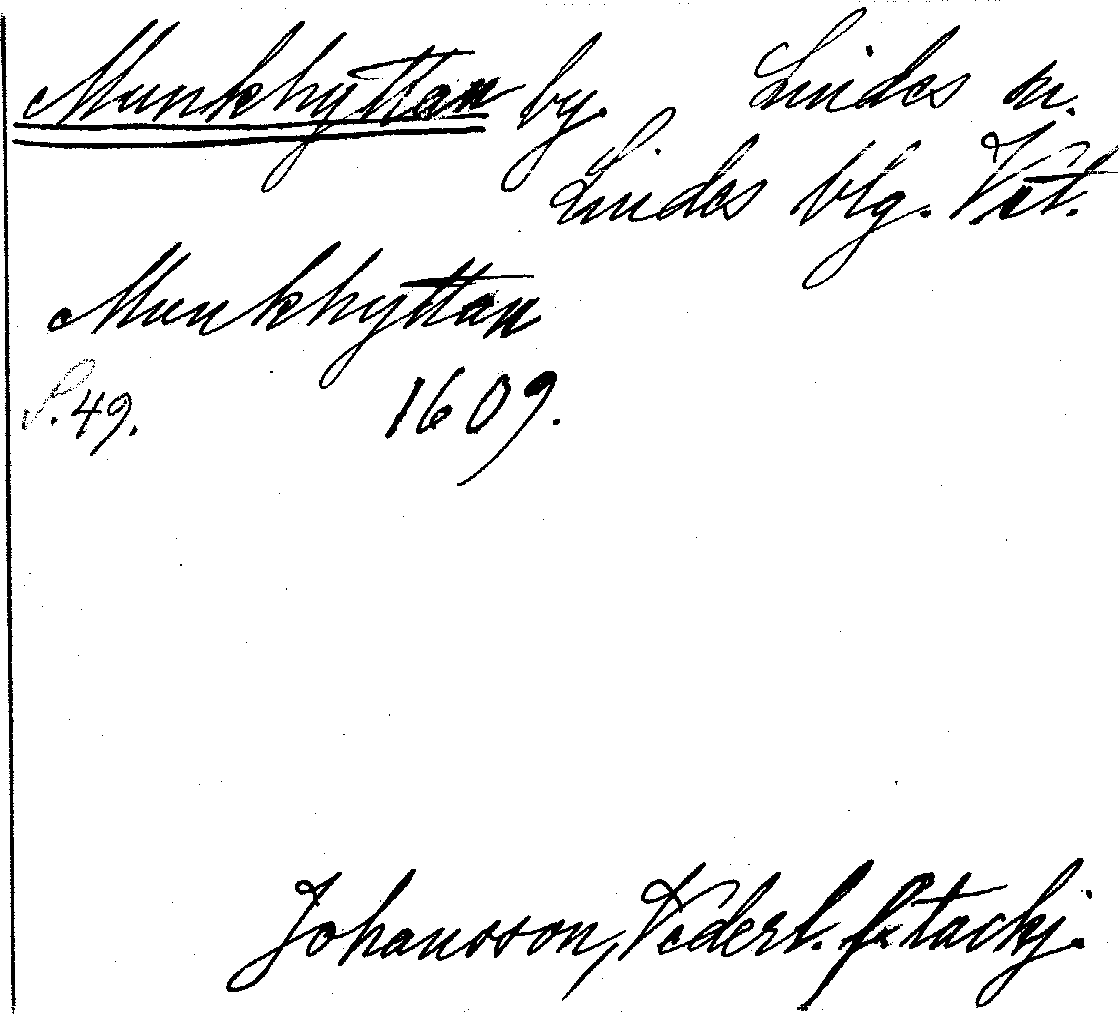 Munkhyttan by. Lindes sn.
Lindes blg. Vstm.
Munkhyttan
S. 49. 1609.
Johansson, Vederl. f. stackj.